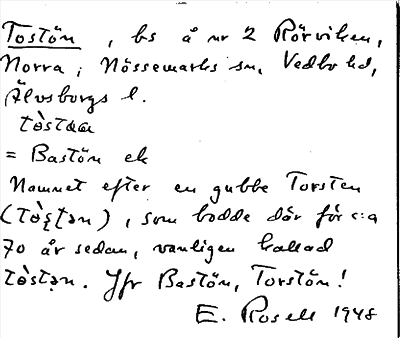 Tostön, bs å nr 2 Rörviken,
Norra i Nössemarks sn, Vedbo hd,
Älvsborgs l.
= Bastön ek
Namnet efter en gubbe Torsten
(tò̀ʂtən), som bodde där för c:a
70 år sedan, vanligen kallad
tòstən. Jfr Bastön, Torstön!
E. Rosell 1948